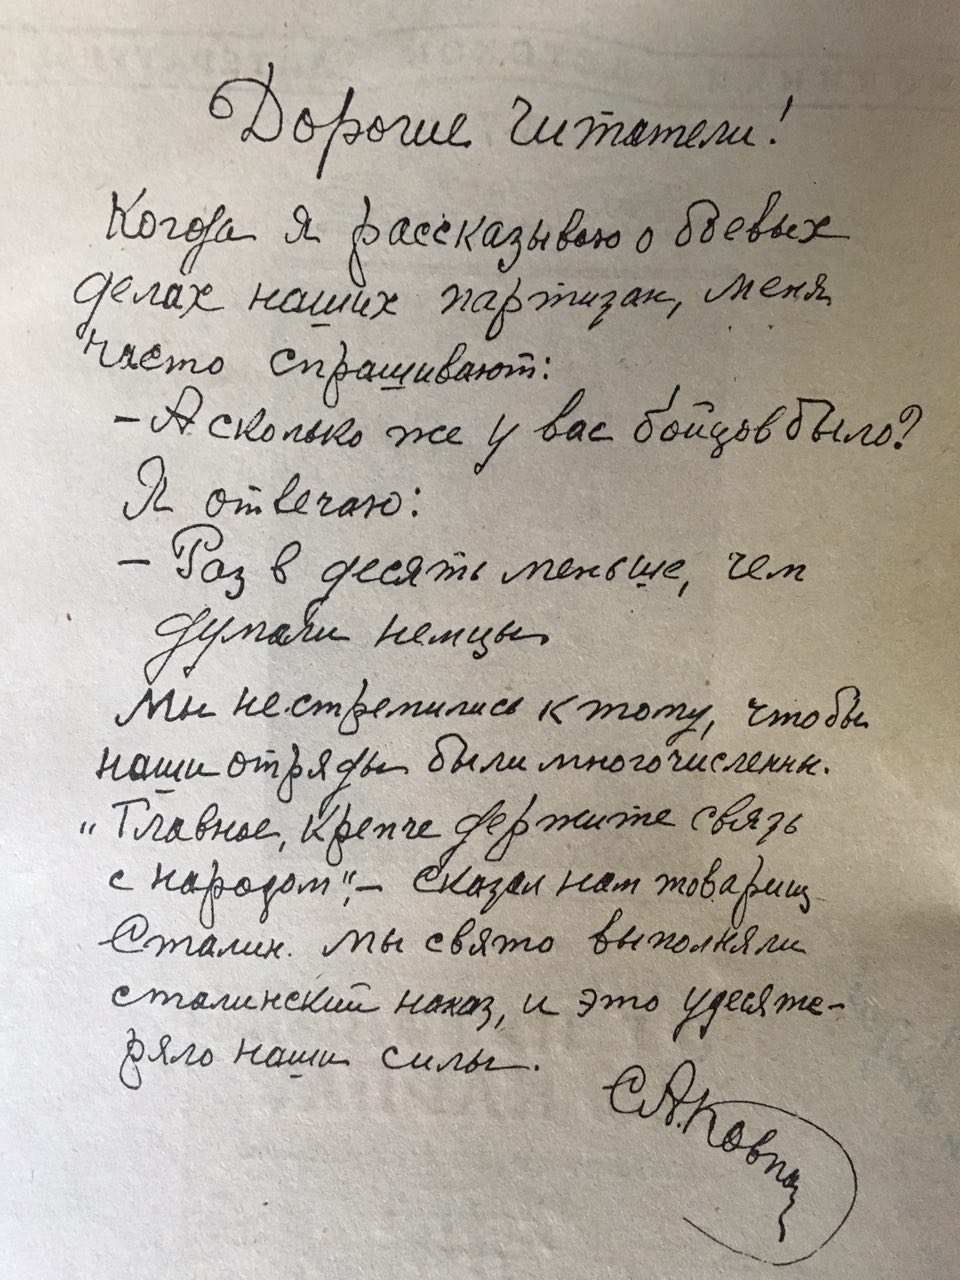 Дорогие читатели!
Когда я рассказываю о боевых
делах наших партизан, меня
часто спрашивают:
– А сколько же у вас бойцов было?
Я отвечаю:
– Раз в десять меньше, чем
думали немцы
Мы не стремились к тому, чтобы
наши отряды были многочисленны.
„Главное, крепче держите связь
с народом", – сказал нам товарищ
Сталин. Мы свято выполняли
сталинский наказ, и это удесяте-
ряло наши силы.
С.А. Ковпак